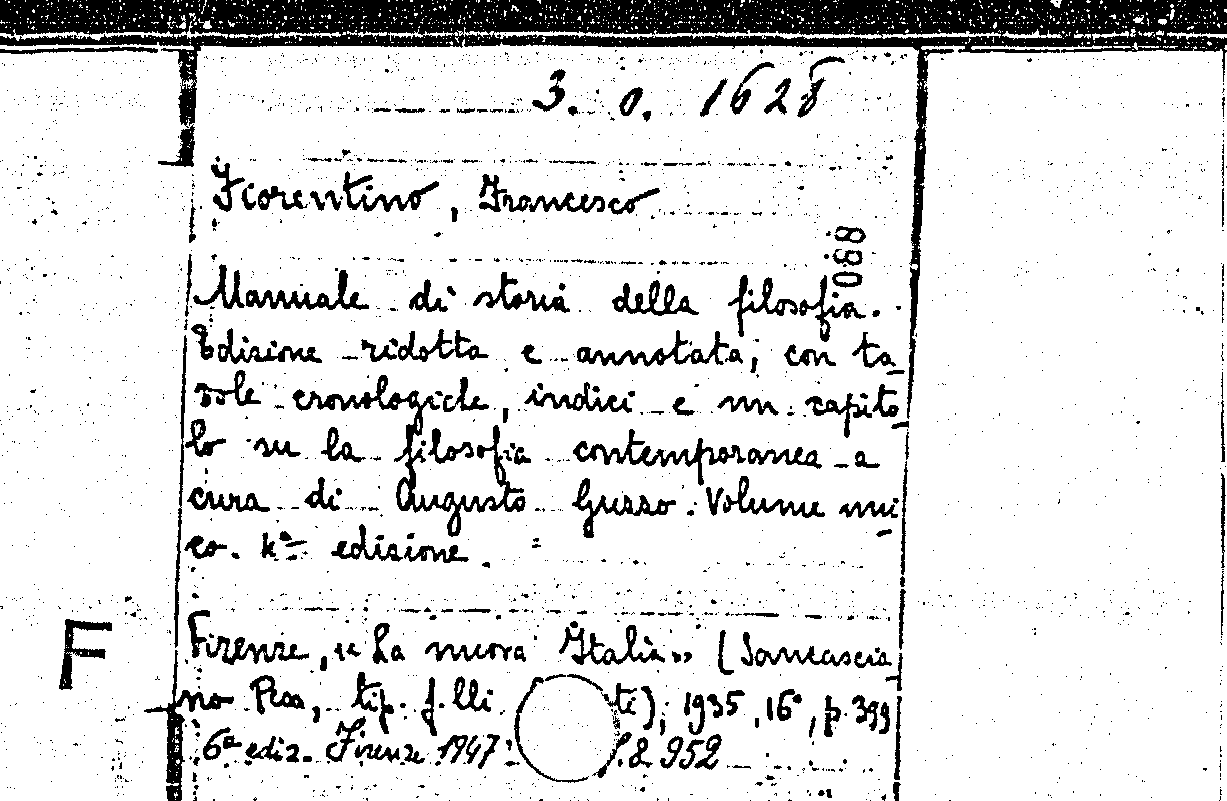 3. o. 1628
Fiorentino, Francesco
088
Manuale di storia della filosofia.
Edizione ridotta e annotata, con ta
vole cronologiche, indici e un capito
lo su la filosofia contemporanea a
cura di Augusto Guzzo. Volume uni
co. 4ª edizione.
F
Firenze, "La nuova Italia" (Sancascia
no Pesa, tip. f.lli ti), 1935, 16°, p. 399
6ª ediz. Firenze 1947: 952